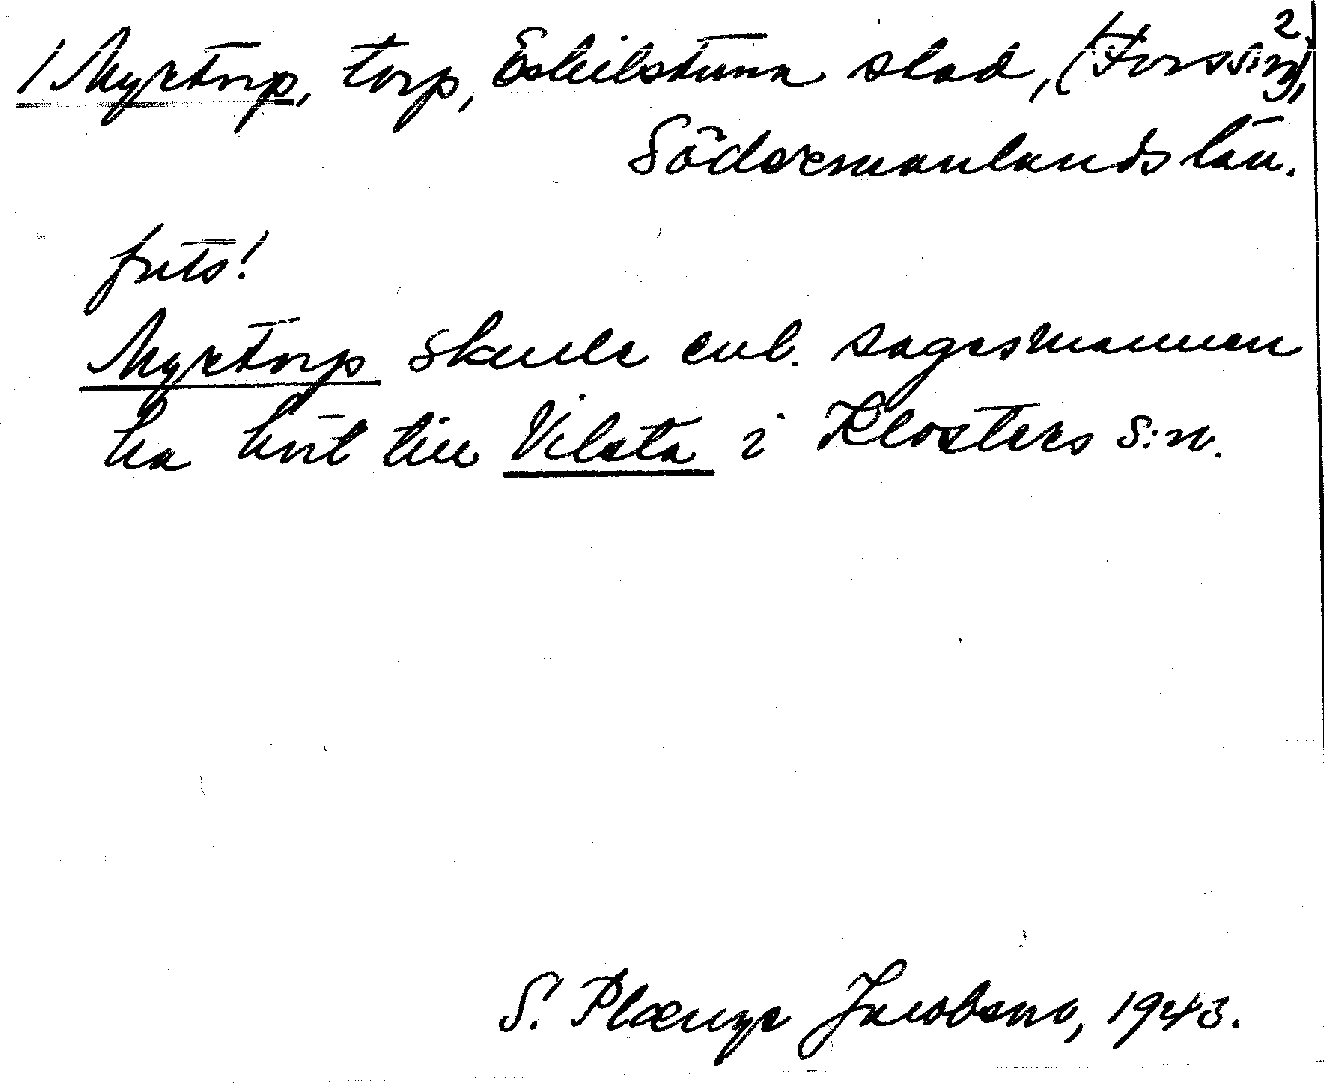 2.
/ Myrtorp, torp, Eskilstuna stad, (Fors s:n),
Södermanlands län.
forts!
Myrtorp skulle enl. sagesmannen
ha hört till Vilsta i Klosters s:n.
S. Jacobsno, 1943.